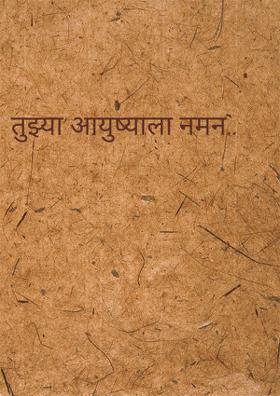 तुझ्या आयुष्याला नमन..